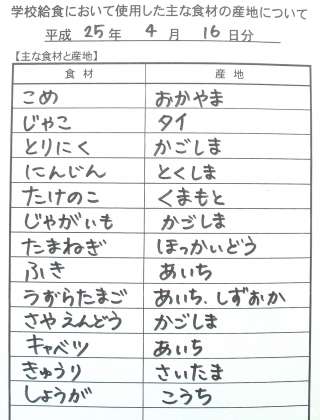 学校給食において使用した主な食材の産地について
平成 25 年 4 月 16 日分
【主な食材と産地】
食材 産地
こめ おかやま
じゃこ タイ
とりにく かごしま
にんじん とくしま
たけのこ くまもと
じゃがいも かごしま
たまねぎ ほっかいどう
ふき あいち
うずらたまご あいち、しずおか
さやえんどう かごしま
キャベツ あいち
きゅうり さいたま
しょうが こうち